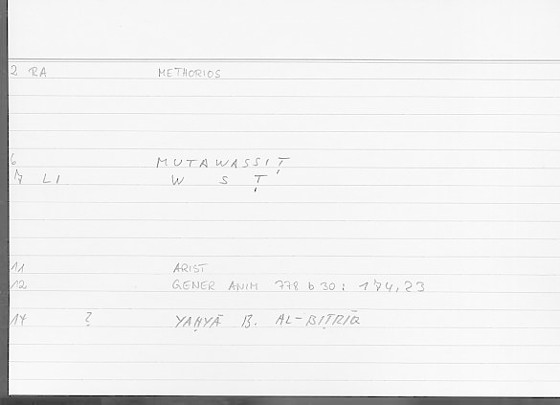 2 RA METHORIOS
6 MUTAWASSIṬ
7 LI W S Ṭ
11 ARIST
12 GENER ANIM 778 b 30 : 174,23
14 ? YAḤYĀ B. AL-BIṬRĪQ